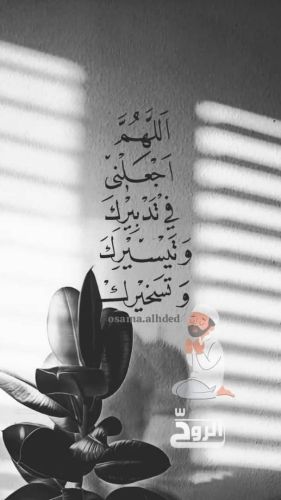 اَللَّهُمَّ
اَجْعَلْنِيْ
فِيْ تَدْبِيْرِكَ
وَتَيْسِيْرِكَ
وَتَسْخِيْرِكْ
osama.alhded
الروحّ